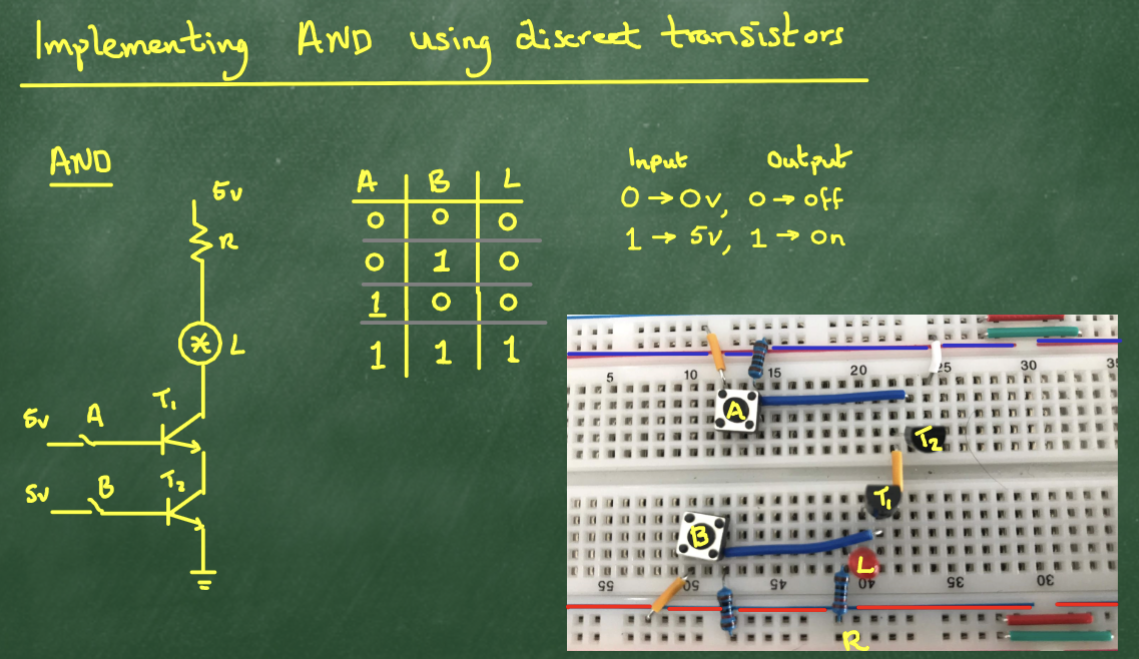 Implementing AND using discreet transistors
AND
5v
R
L
5v A T1
5v B T2
A B L
0 0 0
0 1 0
1 0 0
1 1 1
Input Output
0 → 0v, 0 → off
1 → 5v, 1 → on
5 10 15 20 25 30 35
A
T2
T1
B
L
55 50 45 40 35 30
R